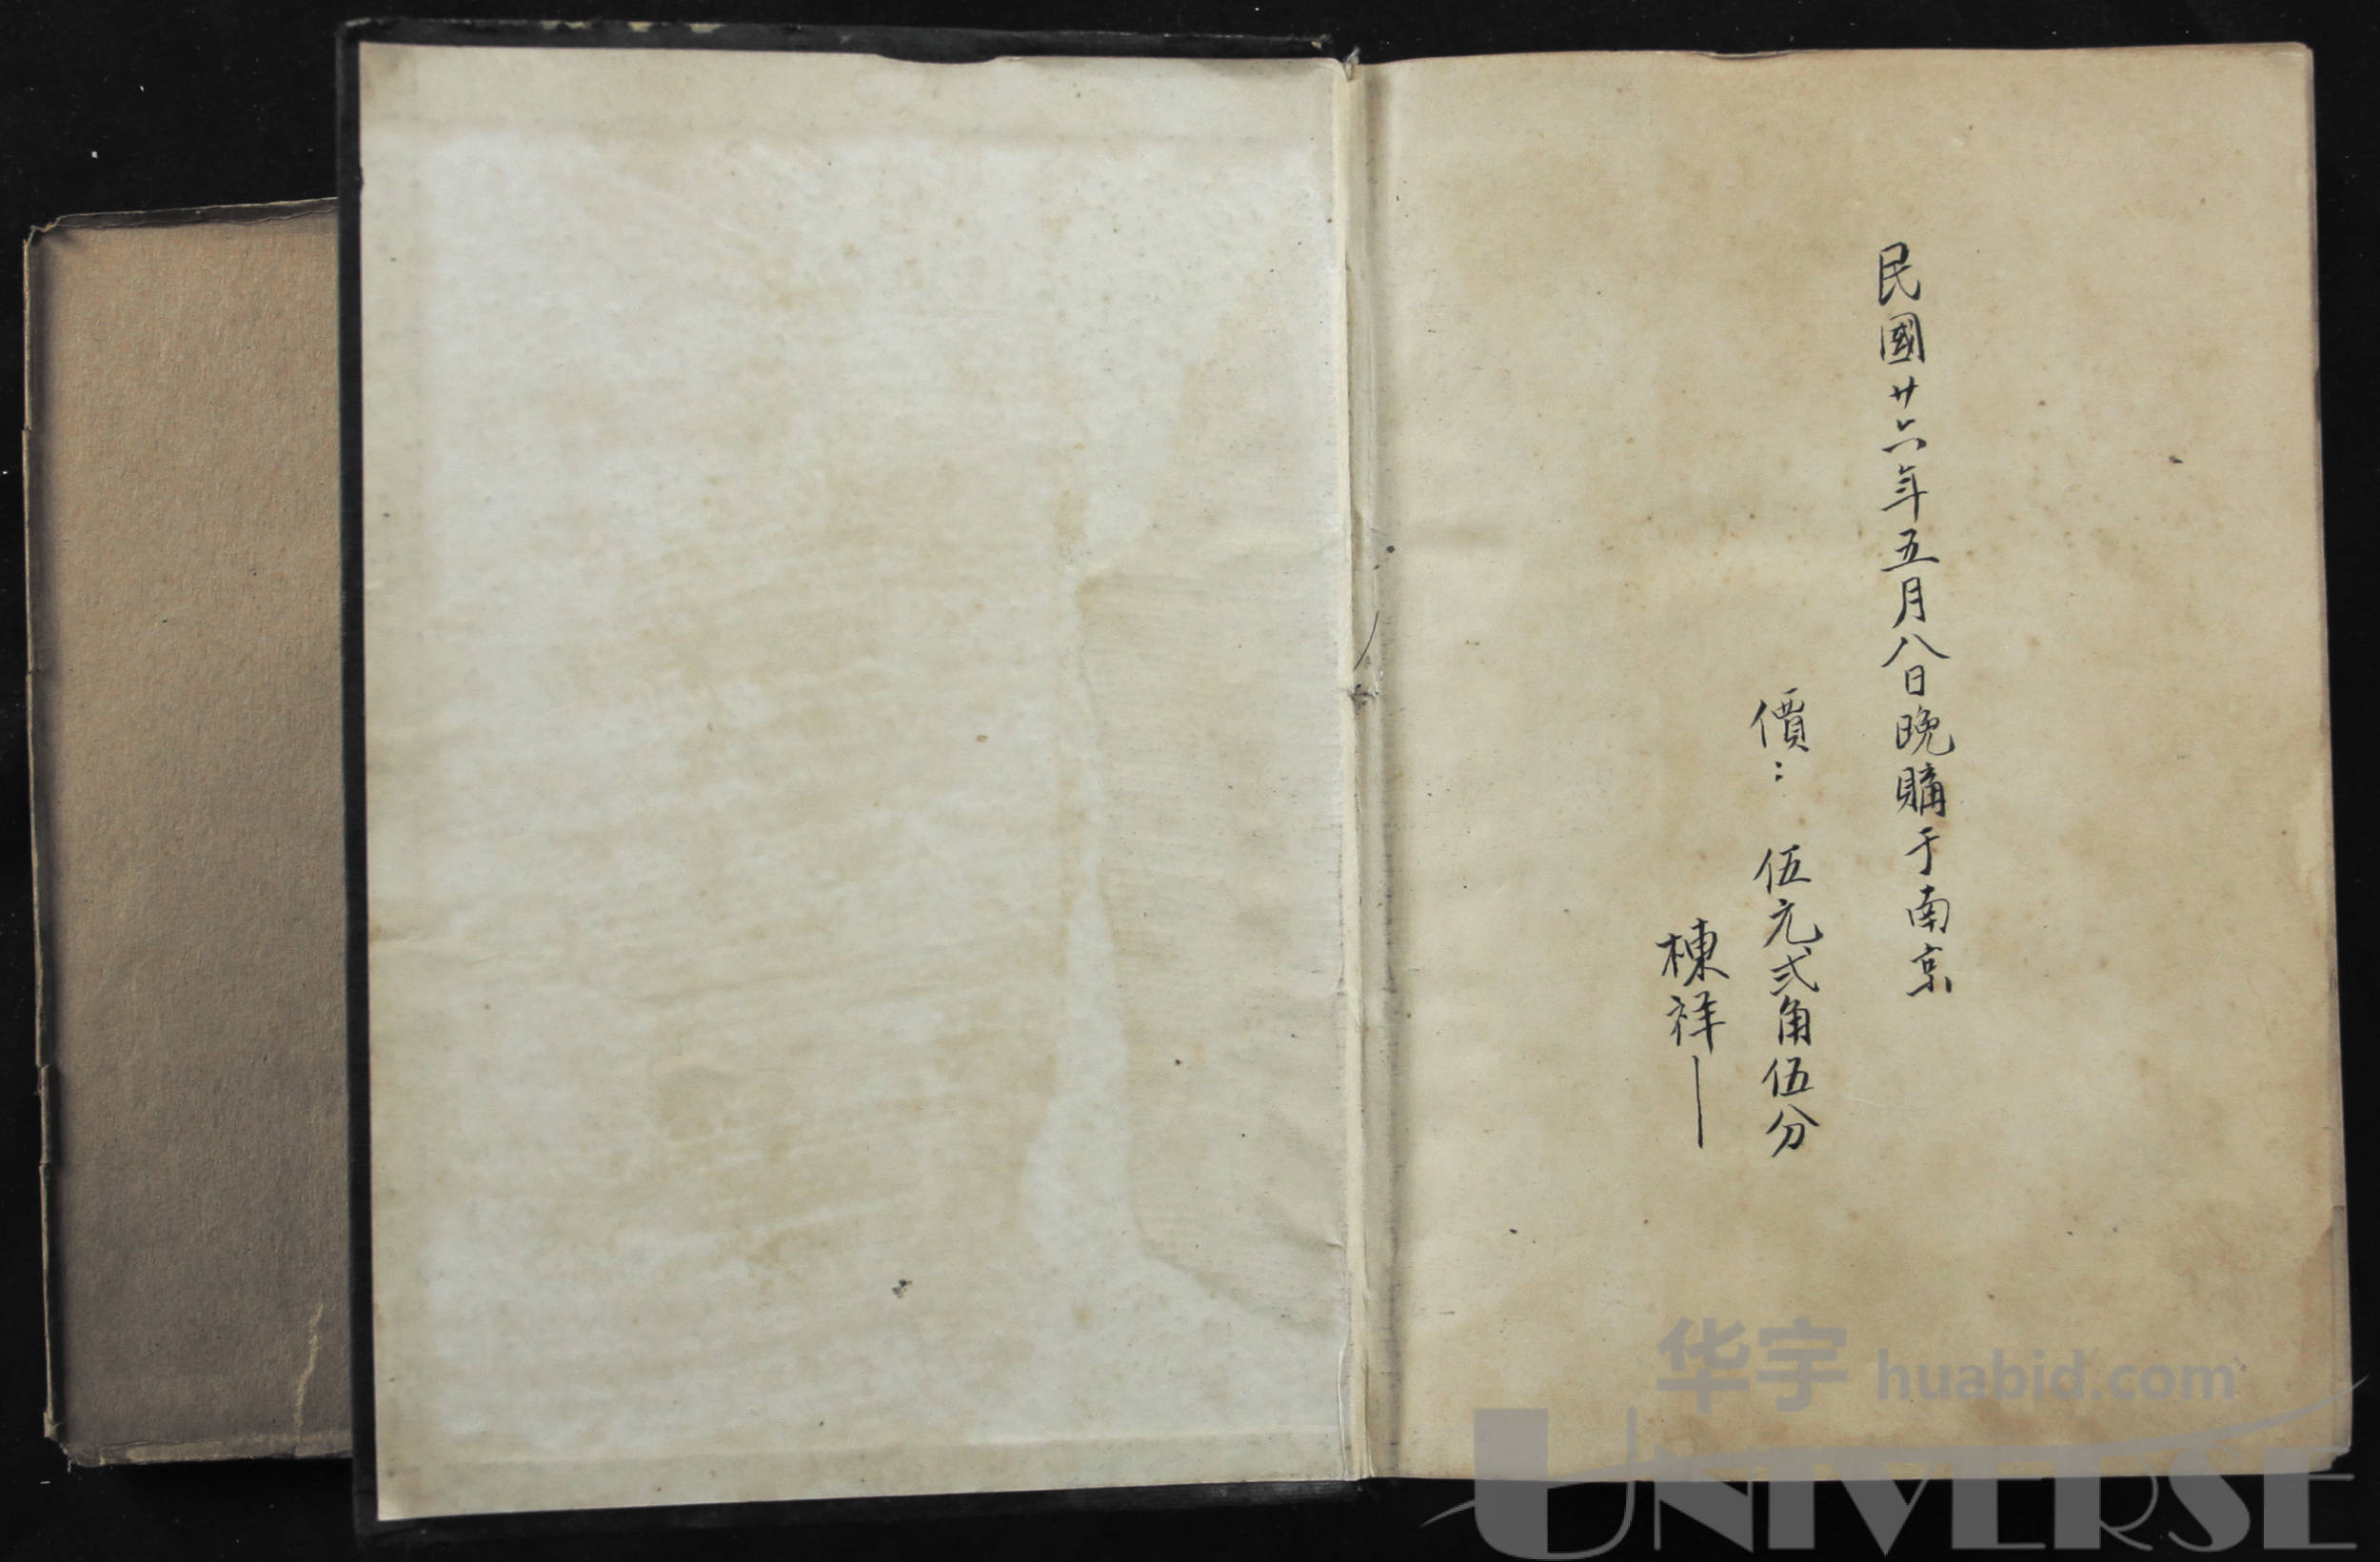 民國廿六年五月八日晚購于南京
價：伍元弍角伍分
棟祥
华宇 huabid.com
UNIVERSE